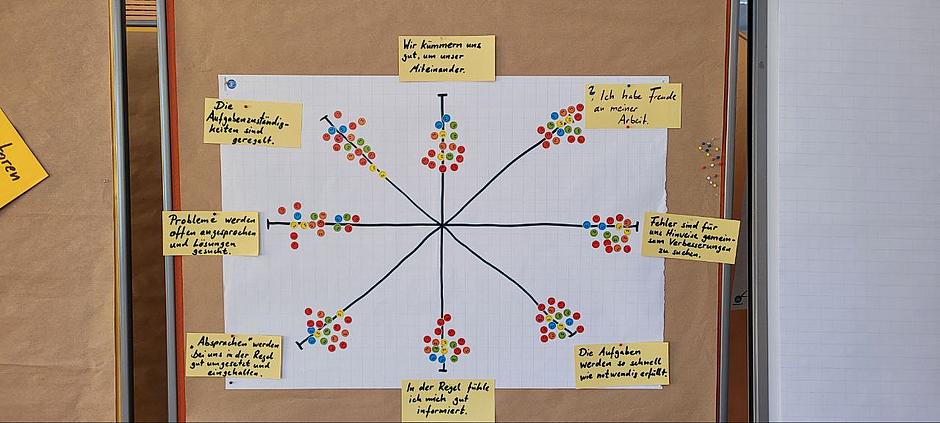 Wir kümmern uns
gut, um unser
Miteinander.
Die
Aufgabenzuständig-
keiten sind
geregelt.
Ich habe Freude
an meiner
Arbeit.
Probleme werden
offen angesprochen
und Lösungen
gesucht.
Fehler sind für
uns Hinweise gemein-
sam Verbesserungen
zu suchen.
"Absprachen" werden
bei uns in der Regel
gut umgesetzt und
eingehalten.
In der Regel fühle
ich mich gut
informiert.
Die Aufgaben
werden so schnell
wie notwendig erfüllt.